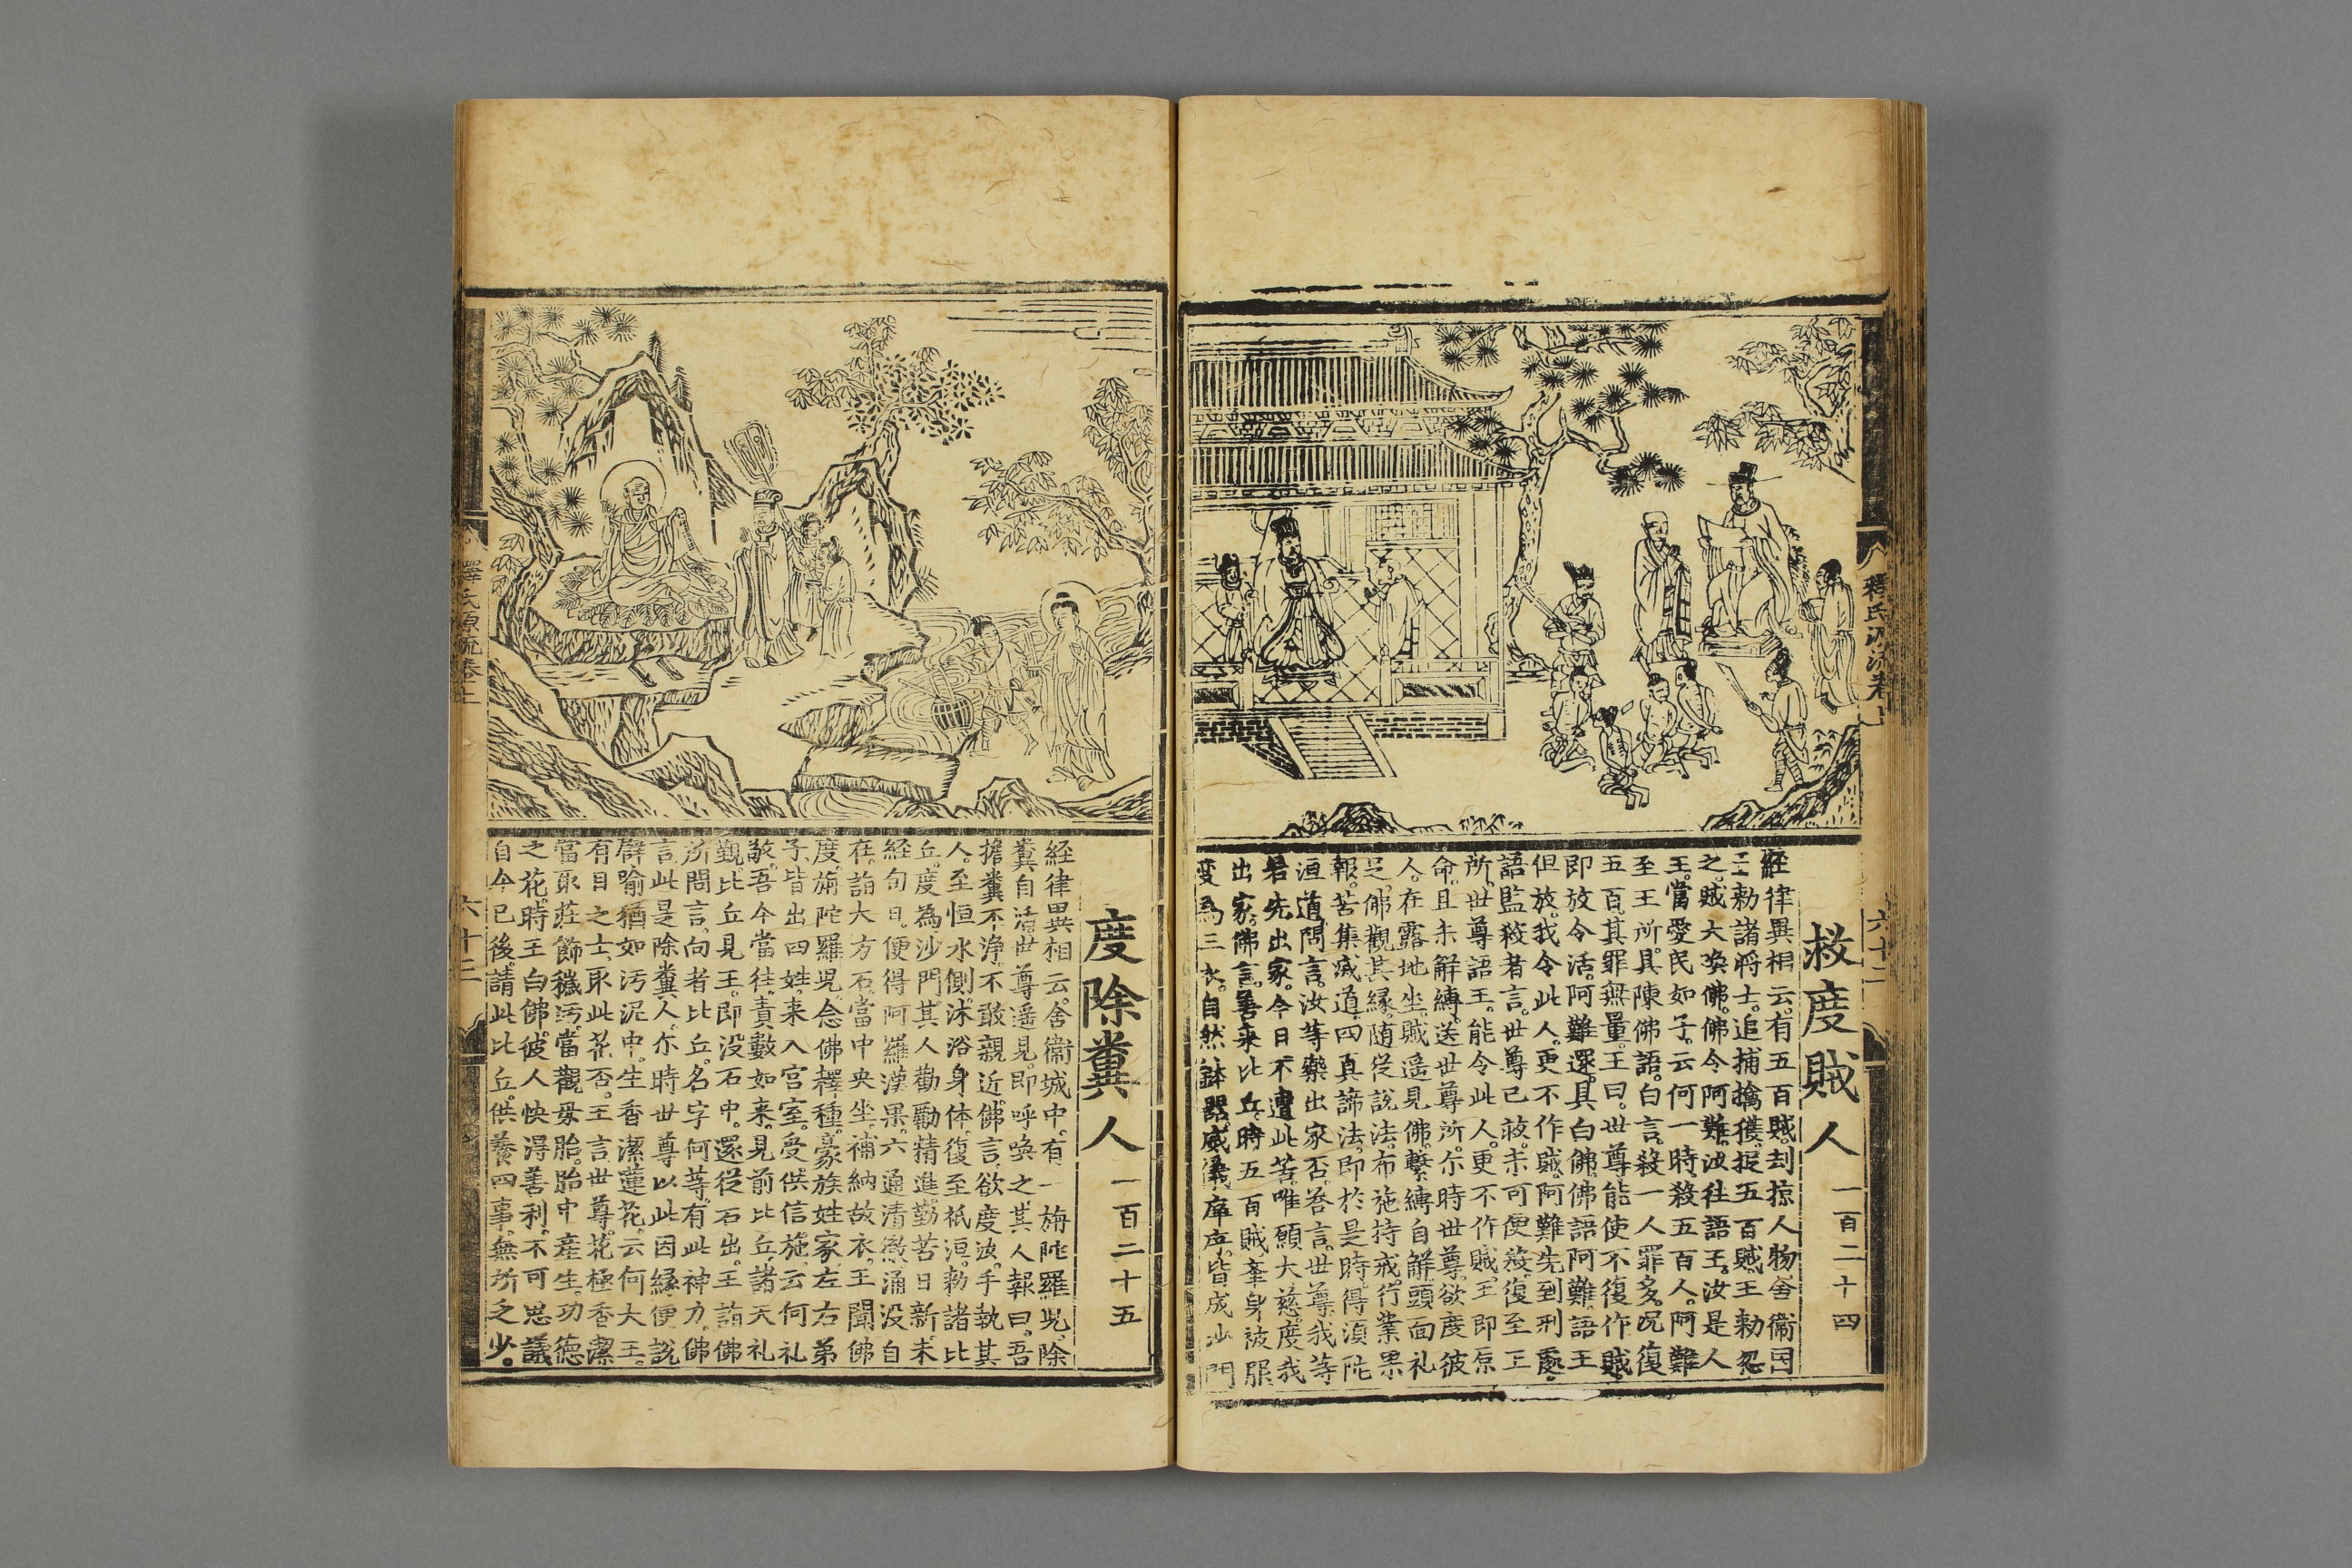 釋氏源流卷上
六十二
救度賊人 一百二十四
経律異相云。有五百賊。刦掠人物。舍衞国
王勑諸將士。追捕擒獲。捉五百賊。王勑忽
之。賊大喚佛。佛令阿難。汝往語王。汝是人
王。當愛民如子。云何一時殺五百人。阿難
至王所。具陳佛語。白言。殺一人罪多。况復
五百。其罪無量。王曰。世尊能使不復作賊
即放令活。阿難還具白佛。佛語阿難。語王
但放。我令此人。更不作賊。阿難先到刑處。
語監殺者言。世尊已救。未可便殺。復至王
所。世尊語王。能令此人。更不作賊。王即原
命。且未解縛。送世尊所。尒時世尊。欲度彼
人。在露地坐。賊遥見佛。繫縛自解。頭面礼
足。佛觀其縁。随從說法。布施持戒。行業果
報。苦集滅道。四真諦法。即於是時。得湏陀
洹道。問言。汝等樂出家否。答言。世尊。我等
若先出家。今日不遭此苦。唯願大慈。度我
出家。佛言。善来比丘。時五百賊。舉身被服
変爲三衣。自然鉢器。威儀庠序。皆成沙門
度除糞人 一百二十五
経律異相云。舍衞城中。有一旃陀羅児。除
糞自活。世尊遥見。即呼喚之。其人報曰。吾
擔糞不浄。不敢親近。佛言。欲度汝。手執其
人。至恒水側。沐浴身体。復至祇洹。勑諸比
丘。度為沙門。其人勸勵精進。勤苦日新。未
経旬日。便得阿羅漢果。六通清徹。涌没自
在。詣大方石。當中央坐。補納故衣。王聞佛
度旃陀羅児。念佛釋種。豪族姓家。左右弟
子。皆出四姓。来入宮室。受供信施。云何礼
敬。吾今當往。責數如来。見前比丘。諸天礼
覲。比丘見王。即没石中。還從石出。王詣佛
所。問言。向者比丘。名字何等。有此神力。佛
言。此是除糞人。尒時世尊。以此因縁。便說
譬喻。猶如污泥中。生香潔蓮花。云何大王。
有目之士。取此花否。王言世尊。花極香潔
當取莊飾。穢污當觀毋胎。胎中産生。功德
之花。時王白佛。彼人快淂善利。不可思議
自今已後。請此比丘。供養四事。無所乏少。
釋氏源流卷上
六十三